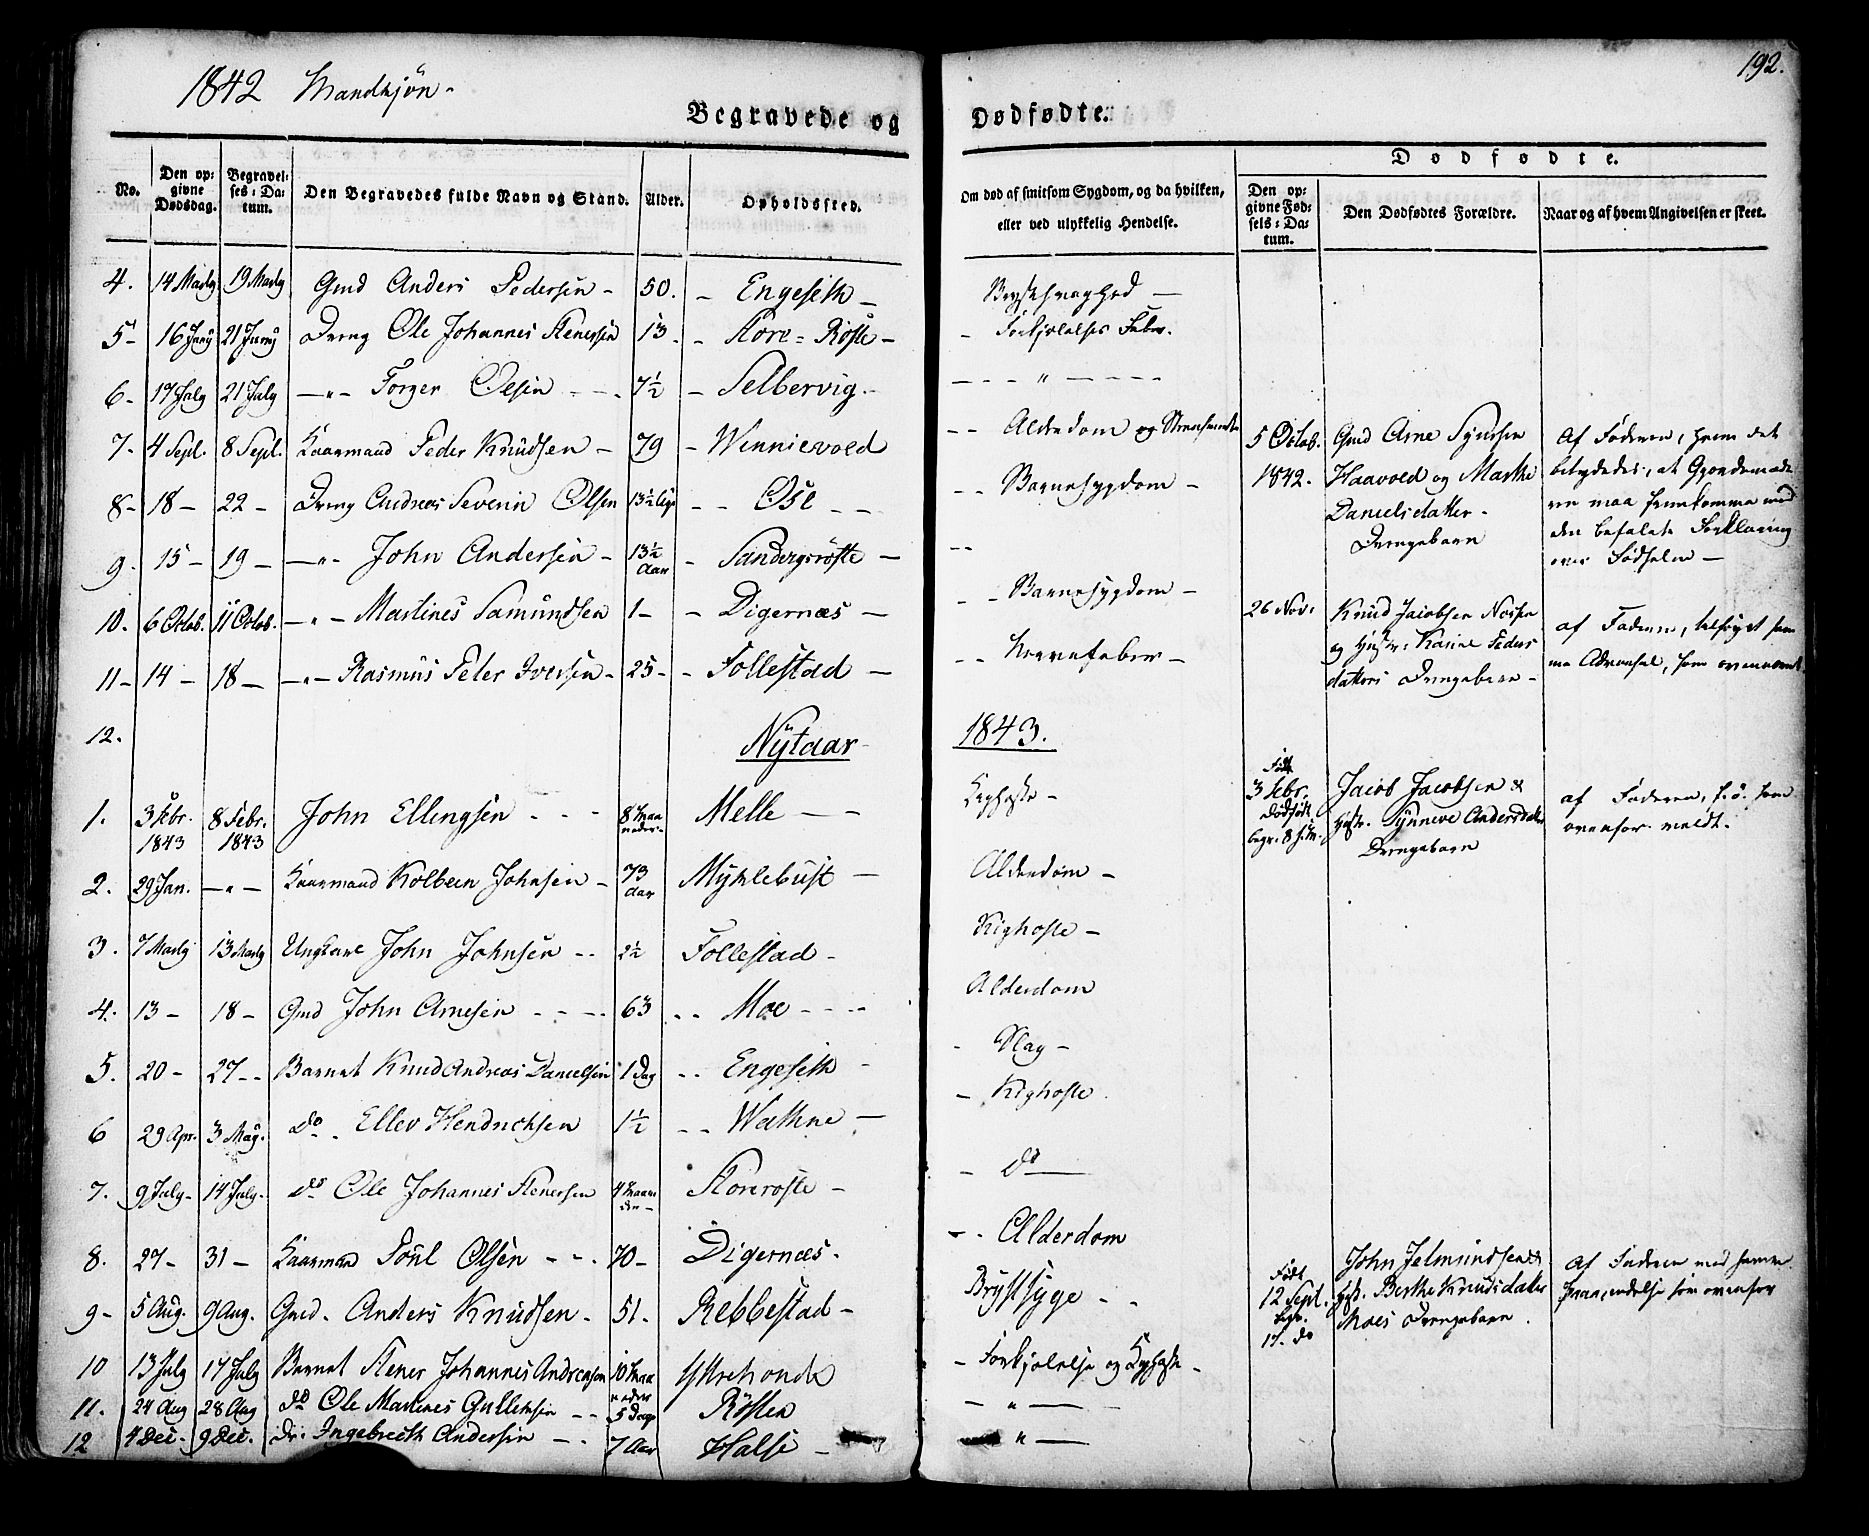 1842 Mandkjøn -
192.
Begravede og Dødfødte.
No. Den opgivne Dødsdag. Begravelses-Datum. Den Begravedes fulde Navn og Stand. Alder. Opholdssted. Om død af smitsom Sygdom, og da hvilken, eller ved ulykkelig Hendelse.
Dødfødte.
Den opgivne Fødsels-Datum. Den Dødfødtes Forældre. Naar og af hvem Angivelsen er skeet.
4. 14 Marty 19 Marty Gmd Anders Pedersen - 50. - Engeseth - Brystsvaghed -
5 - 16 Juny 21 Juny Dreng Ole Johannes Stenersen 13. - Store=Røste - - Forkjølelses Feber.
6 - 17 July 21 July -"- Torger Olsen - - 7½ - Selbervig - - - - " - - - -
7. 4 Sept. 8 Sept. Kaarmand Peder Knudsen - 79 - Winnievold - - Alderdom og
8 - 18 - 22 - Dreng Andreas Severin Olsen 13½ - - Ose - - - - Barnesygdom -
9. 15 - 19 - -"- John Andersen - 13½ Aar - Sandersrøste - - -
10. 6 Octob. 11 Octob. -"- Martines Samundsen 1 - - Digernæs - - - Barnesygdom -
11 - 14 - 18 - -"- Rasmus Peter Iversen - 25 - - Follestad - - - Nervefeber -
5 Octob. 1842. Gmd Arne Synesen
Haavold og Marthe
Danielsdatter -
Drengebarn
Af Faderen, hvem det
betydedes, at Gjordemode
ren maa fremkomme med
den befalede Forklaring
over Fødselen -
26 Nov. Knud Jacobsen
og Hustr: Karine Peders
datters Drengebarn -
af Faderen, tilføyet sam
me Advarsel, som ovenmeldt
12.
Nytaar 1843.
1. 3 Febr. 1843 8 Febr. 1843 John Ellingsen - - - 8 Maaneder - Melle - - Kighoste -
2. 29 Jan. -"- Kaarmand Kolbeen Johnsen - 73 Aar Myklebust - Alderdom -
3. 7 Marty 13 Marty Ungkarl John Johnsen - - 2½ Follestad - Kighoste -
4. 13 - 18 - Gmd John Arnesen - - - - 63 - - Moe - - - Alderdom
5. 20 - 27 - - Barnet Knud Andreas Danielsen 1 Dag - - Engeseth - - Slag -
6 29 Apr. 3 May. do Ellev Hendrichsen 1½ - - Wathne - - Kighoste.
7. 9 July - 14 July - do Ole Johannes Stenersen 4 Maaneder - Storerøste - - do -
8. 27 - 31 - Kaarmand Poul Olsen - - - 70 - Digernæs - - - Alderdom
9 - 5 Aug. 9 Aug. Gmd. Anders Knudsen - 51. Rebbestad - Brystsyge - -
10 13 July 17 July Barnet Stener Johannes Andreasen 10 Maaneder Yttrehovde - Forkjølelse og Kighoste -
11. 24 Aug 28 Aug do Ole Martines Gulleksen - - 5 Dage Røsten - " -
12 4 Dec. 9 Dec. do: Ingebrecth Andersen - - 7 Aar Halse - - " -
Født 3 Febr. Dødfødt begr. 8
Jacob Jacobsen &
Hustr. Synneve Andersdatter
Drengebarn
af Faderen, som
ovenfor meldt.
Født 12 Sept. begr. 17. do
John Jelmundsen &
Hustr. Berthe Knudsdatter
Moes Drengebarn.
Af Faderen med samme
som ovenfor